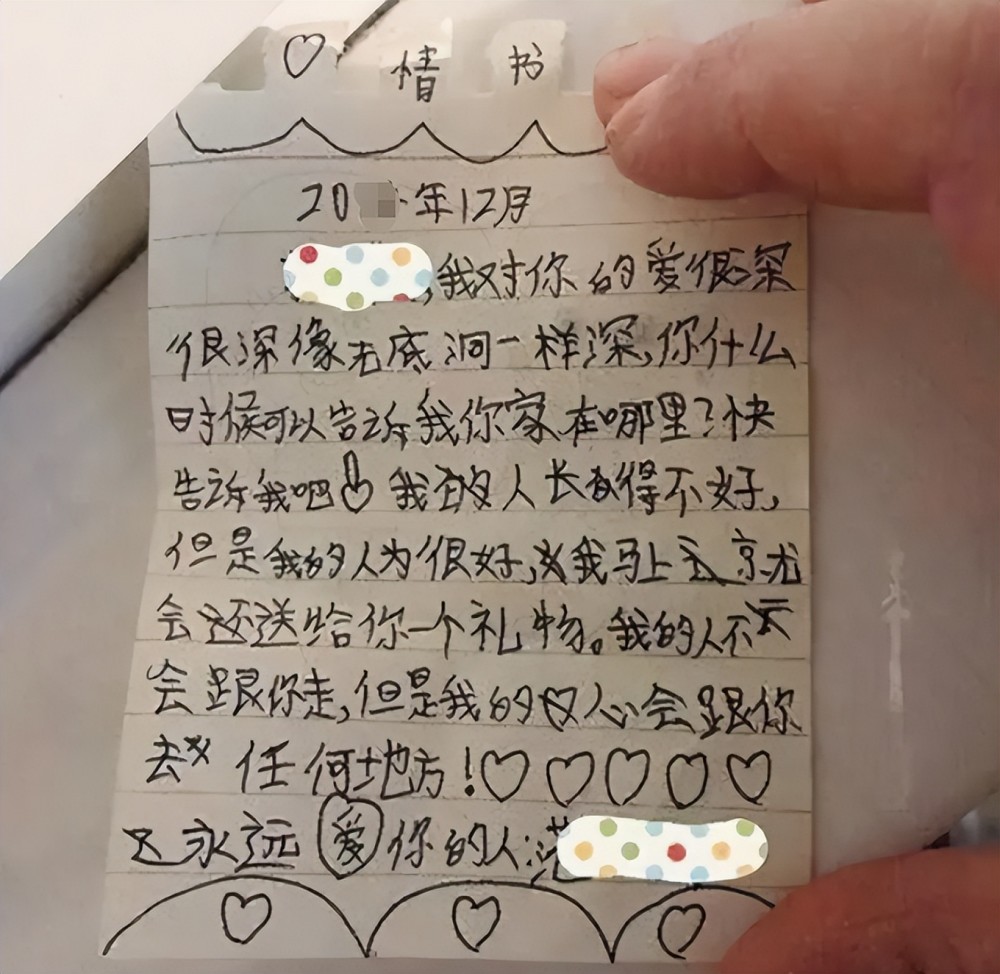 情书
20 年12月
,我对你的爱很深
很深像无底洞一样深,你什么
时候可以告诉我你家在哪里?快
告诉我吧 我的人长得不好,
但是我的人为很好,我马上就
会还送给你一个礼物。我的人不
会跟你走,但是我的心会跟你
去 任何地方!
永远爱你的人:范